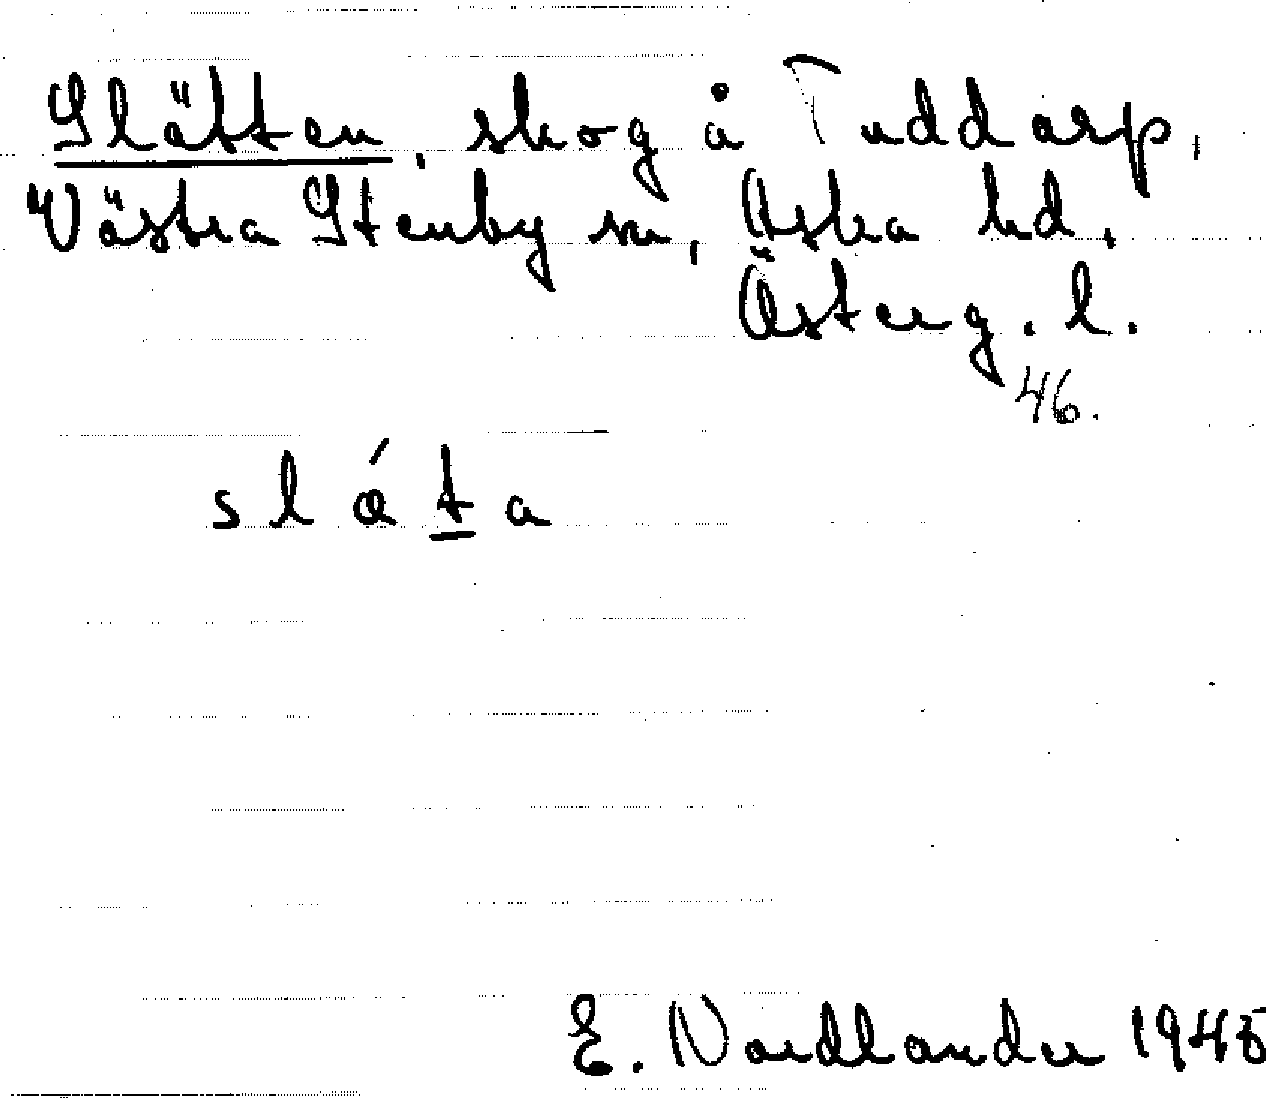 Slätten, skog å Tuddarp,
Västra Stenby sn, Aska hd,
Österg. l.
46.
slá̱ta
E. Nordlander 1945